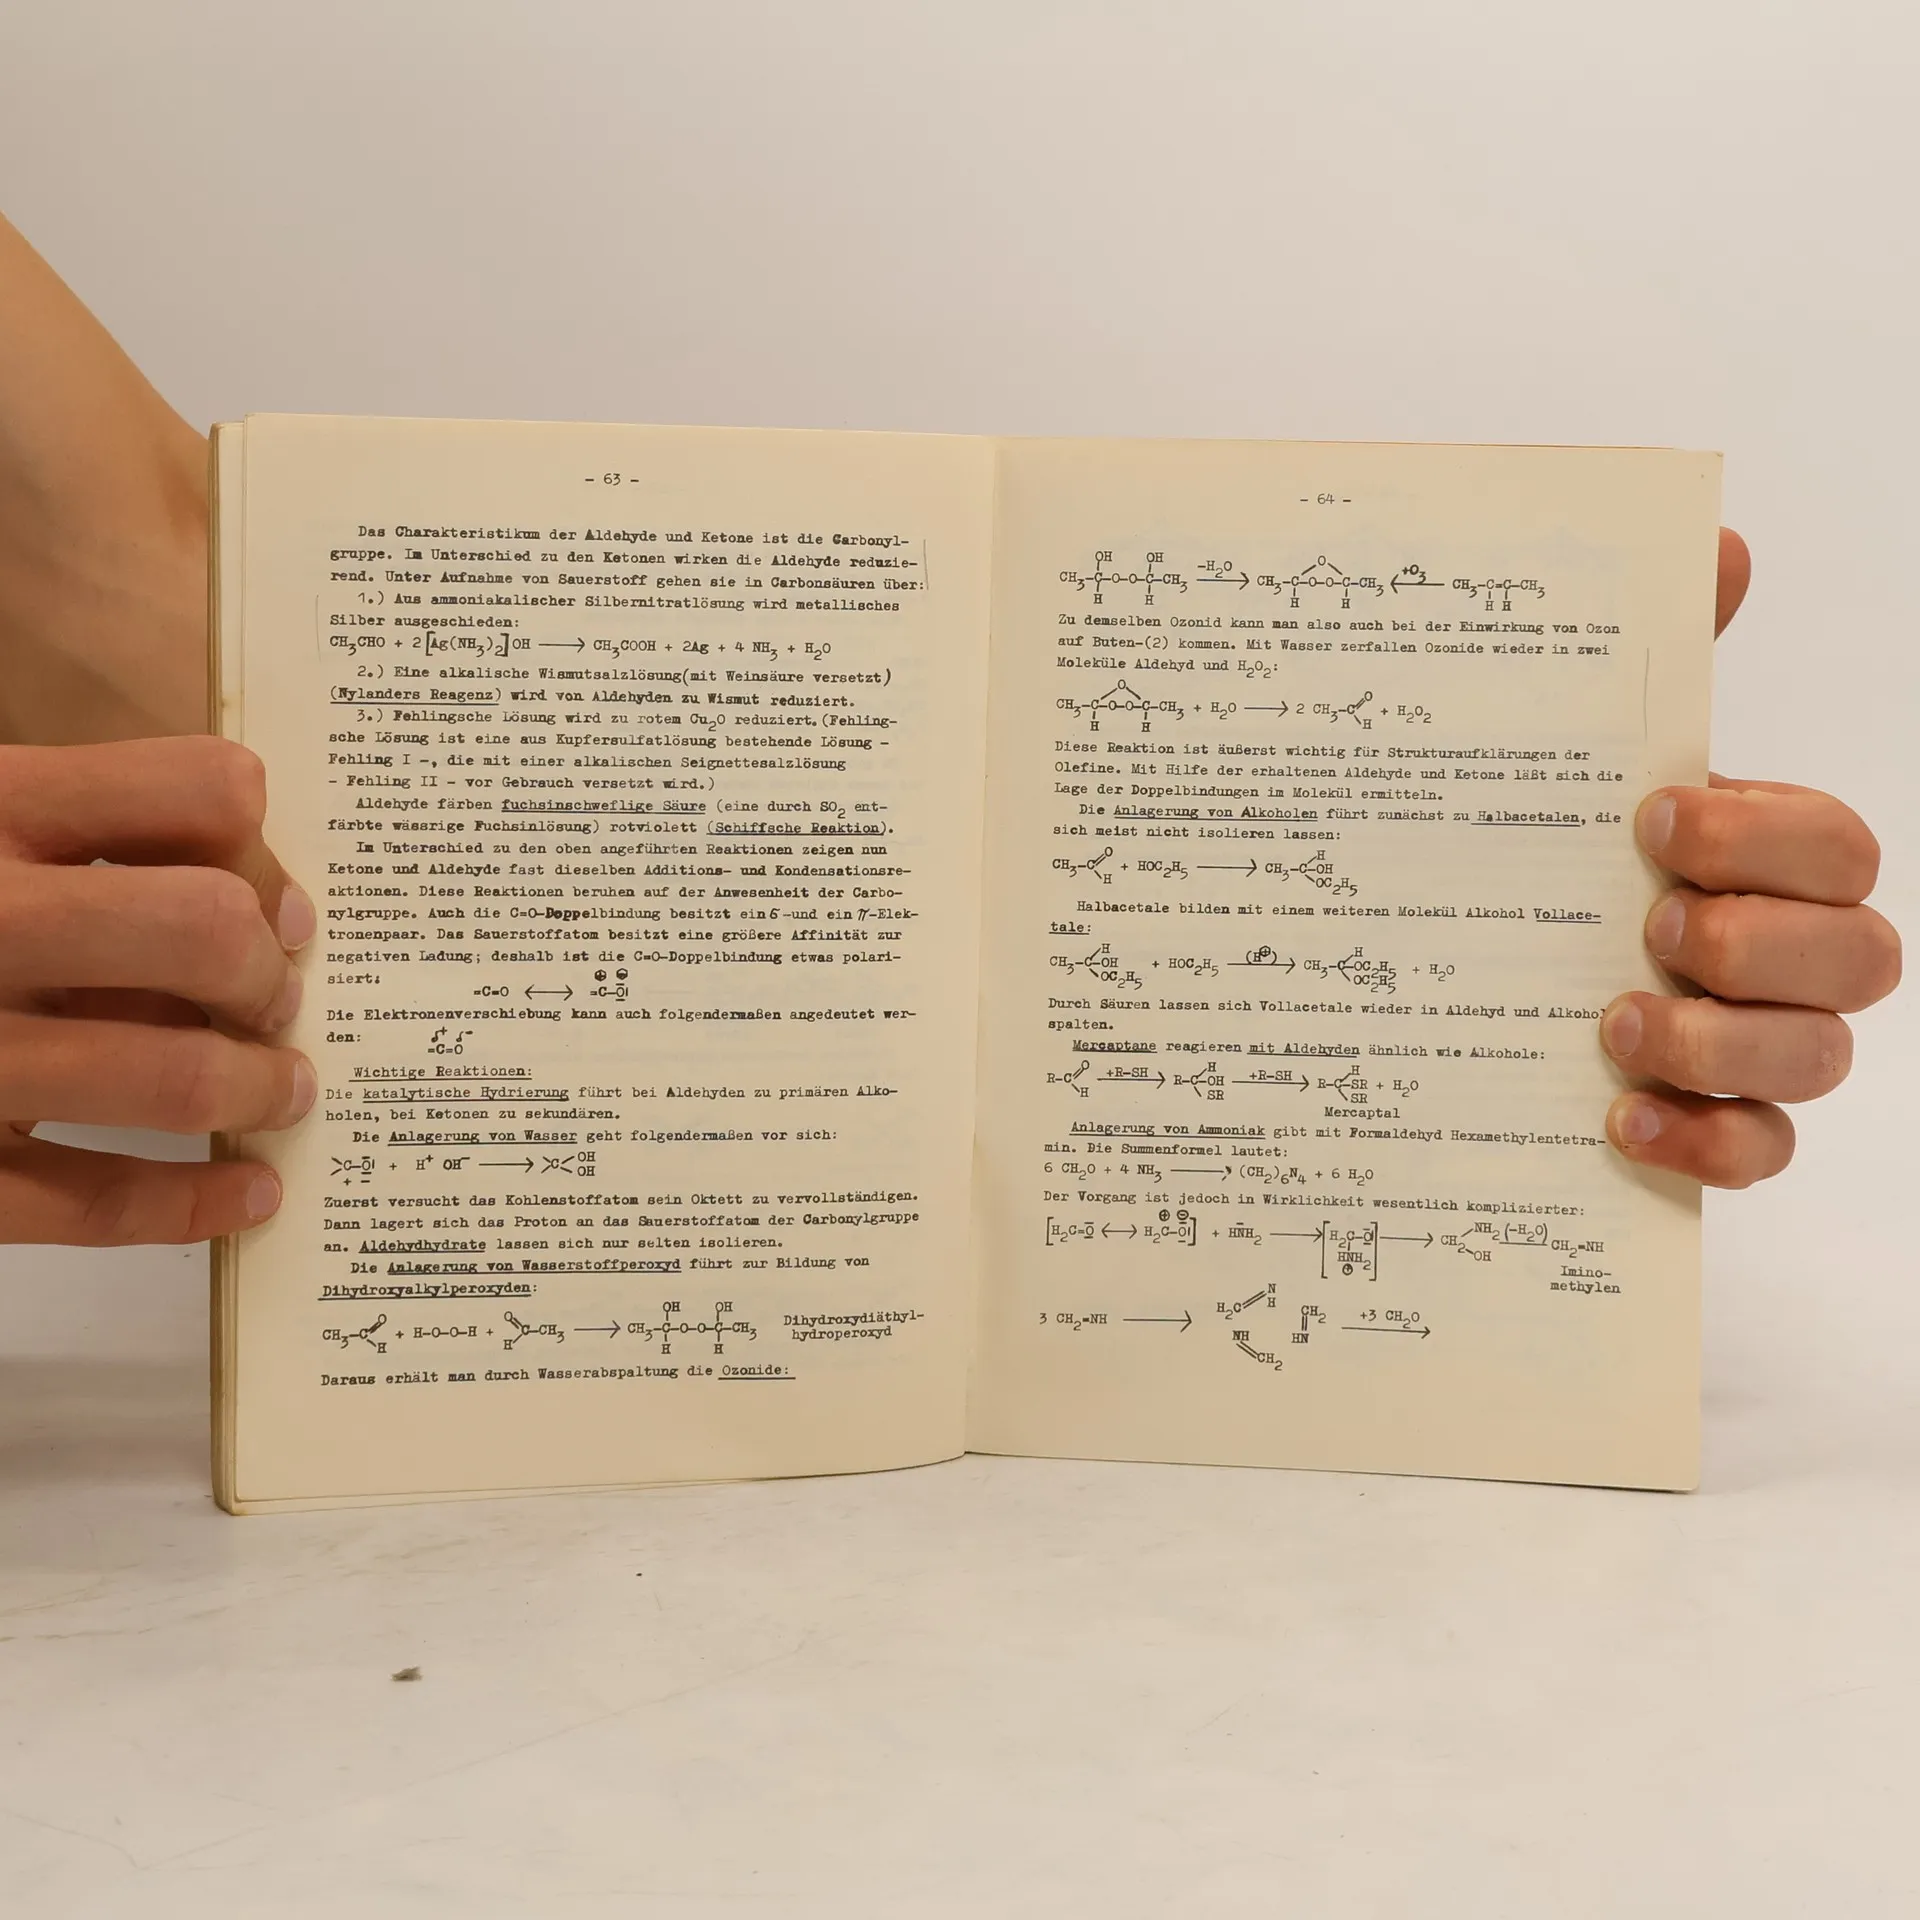 - 63 -
Das Charakteristikum der Aldehyde und Ketone ist die Carbonyl-
gruppe. Im Unterschied zu den Ketonen wirken die Aldehyde reduzie-
rend. Unter Aufnahme von Sauerstoff gehen sie in Carbonsäuren über:
1.) Aus ammoniakalischer Silbernitratlösung wird metallisches
Silber ausgeschieden:
CH₃CHO + 2 [Ag(NH₃)₂]OH ⟶ CH₃COOH + 2Ag + 4 NH₃ + H₂O
2.) Eine alkalische Wismutsalzlösung(mit Weinsäure versetzt)
(Nylanders Reagenz) wird von Aldehyden zu Wismut reduziert.
3.) Fehlingsche Lösung wird zu rotem Cu₂O reduziert.(Fehling-
sche Lösung ist eine aus Kupfersulfatlösung bestehende Lösung -
Fehling I -, die mit einer alkalischen Seignettesalzlösung
- Fehling II - vor Gebrauch versetzt wird.)
Aldehyde färben fuchsinschweflige Säure (eine durch SO₂ ent-
färbte wässrige Fuchsinlösung) rotviolett (Schiffsche Reaktion).
Im Unterschied zu den oben angeführten Reaktionen zeigen nun
Ketone und Aldehyde fast dieselben Additions- und Kondensationsre-
aktionen. Diese Reaktionen beruhen auf der Anwesenheit der Carbo-
nylgruppe. Auch die C=O-Doppelbindung besitzt ein б-und ein π-Elek-
tronenpaar. Das Sauerstoffatom besitzt eine größere Affinität zur
negativen Ladung; deshalb ist die C=O-Doppelbindung etwas polari-
siert:
⊕ ⊖
=C=O ⟷ =C-O̲̅|
Die Elektronenverschiebung kann auch folgendermaßen angedeutet wer-
den: δ⁺ δ⁻
=C=O
Wichtige Reaktionen:
Die katalytische Hydrierung führt bei Aldehyden zu primären Alko-
holen, bei Ketonen zu sekundären.
Die Anlagerung von Wasser geht folgendermaßen vor sich:
OH
>C-O̲̅| + H⁺ OH⁻ ⟶ >C<
+ - OH
Zuerst versucht das Kohlenstoffatom sein Oktett zu vervollständigen.
Dann lagert sich das Proton an das Sauerstoffatom der Carbonylgruppe
an. Aldehydhydrate lassen sich nur selten isolieren.
Die Anlagerung von Wasserstoffperoxyd führt zur Bildung von
Dihydroxyalkylperoxyden:
O O OH OH Dihydroxydiäthyl-
CH₃-C + H-O-O-H + C-CH₃ ⟶ CH₃-C-O-O-C-CH₃ hydroperoxyd
H H H H
Daraus erhält man durch Wasserabspaltung die Ozonide:
- 64 -
OH OH O
CH₃-C-O-O-C-CH₃ -H₂O ⟶ CH₃-C-O-O-C-CH₃ ⟵ +O₃ CH₃-C=C-CH₃
H H H H H H
Zu demselben Ozonid kann man also auch bei der Einwirkung von Ozon
auf Buten-(2) kommen. Mit Wasser zerfallen Ozonide wieder in zwei
Moleküle Aldehyd und H₂O₂:
O O
CH₃-C-O-O-C-CH₃ + H₂O ⟶ 2 CH₃-C + H₂O₂
H H H
Diese Reaktion ist äußerst wichtig für Strukturaufklärungen der
Olefine. Mit Hilfe der erhaltenen Aldehyde und Ketone läßt sich die
Lage der Doppelbindungen im Molekül ermitteln.
Die Anlagerung von Alkoholen führt zunächst zu Halbacetalen, die
sich meist nicht isolieren lassen:
O H
CH₃-C + HOC₂H₅ ⟶ CH₃-C-OH
H OC₂H₅
Halbacetale bilden mit einem weiteren Molekül Alkohol Vollace-
tale:
H H
CH₃-C-OH + HOC₂H₅ (H⊕) ⟶ CH₃-C-OC₂H₅ + H₂O
OC₂H₅ OC₂H₅
Durch Säuren lassen sich Vollacetale wieder in Aldehyd und Alkohol
spalten.
Mercaptane reagieren mit Aldehyden ähnlich wie Alkohole:
O H H
R-C +R-SH ⟶ R-C-OH +R-SH ⟶ R-C-SR + H₂O
H SR SR
Mercaptal
Anlagerung von Ammoniak gibt mit Formaldehyd Hexamethylentetra-
min. Die Summenformel lautet:
6 CH₂O + 4 NH₃ ⟶ (CH₂)₆N₄ + 6 H₂O
Der Vorgang ist jedoch in Wirklichkeit wesentlich komplizierter:
⊕ ⊖
[H₂C=O̲̅ ⟷ H₂C-O̲̅|] + HN̅H₂ ⟶ [H₂C-O̅| ⟶ CH₂ NH₂ (-H₂O) CH₂=NH
HNH₂ OH Imino-
⊕] methylen
3 CH₂=NH ⟶ H₂C N H CH₂ +3 CH₂O ⟶
NH HN
CH₂